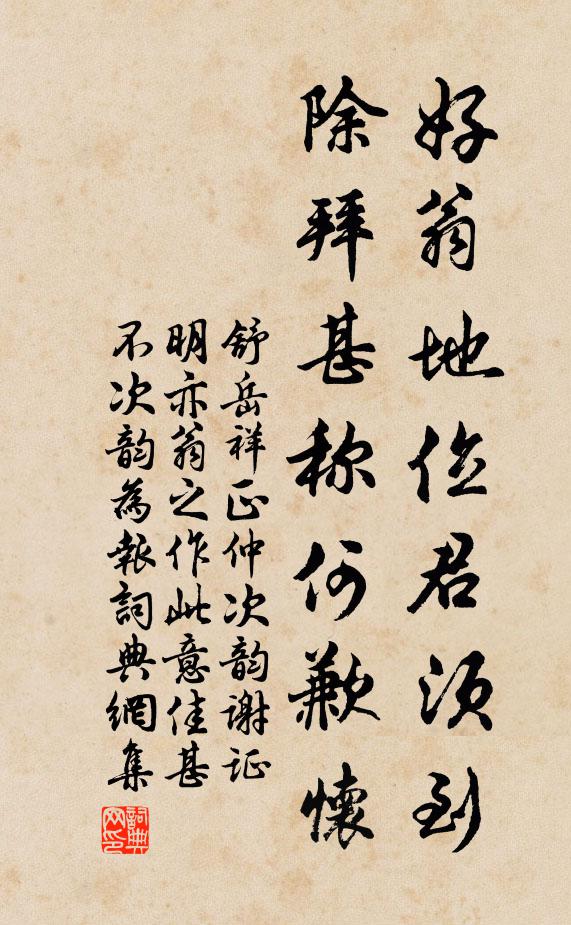 好翁地位君须到
除拜甚称何歉懷
舒岳祥正仲次韵谢证
明亦翁之作此意佳甚
不次韵為報詞典網集
詞典网印